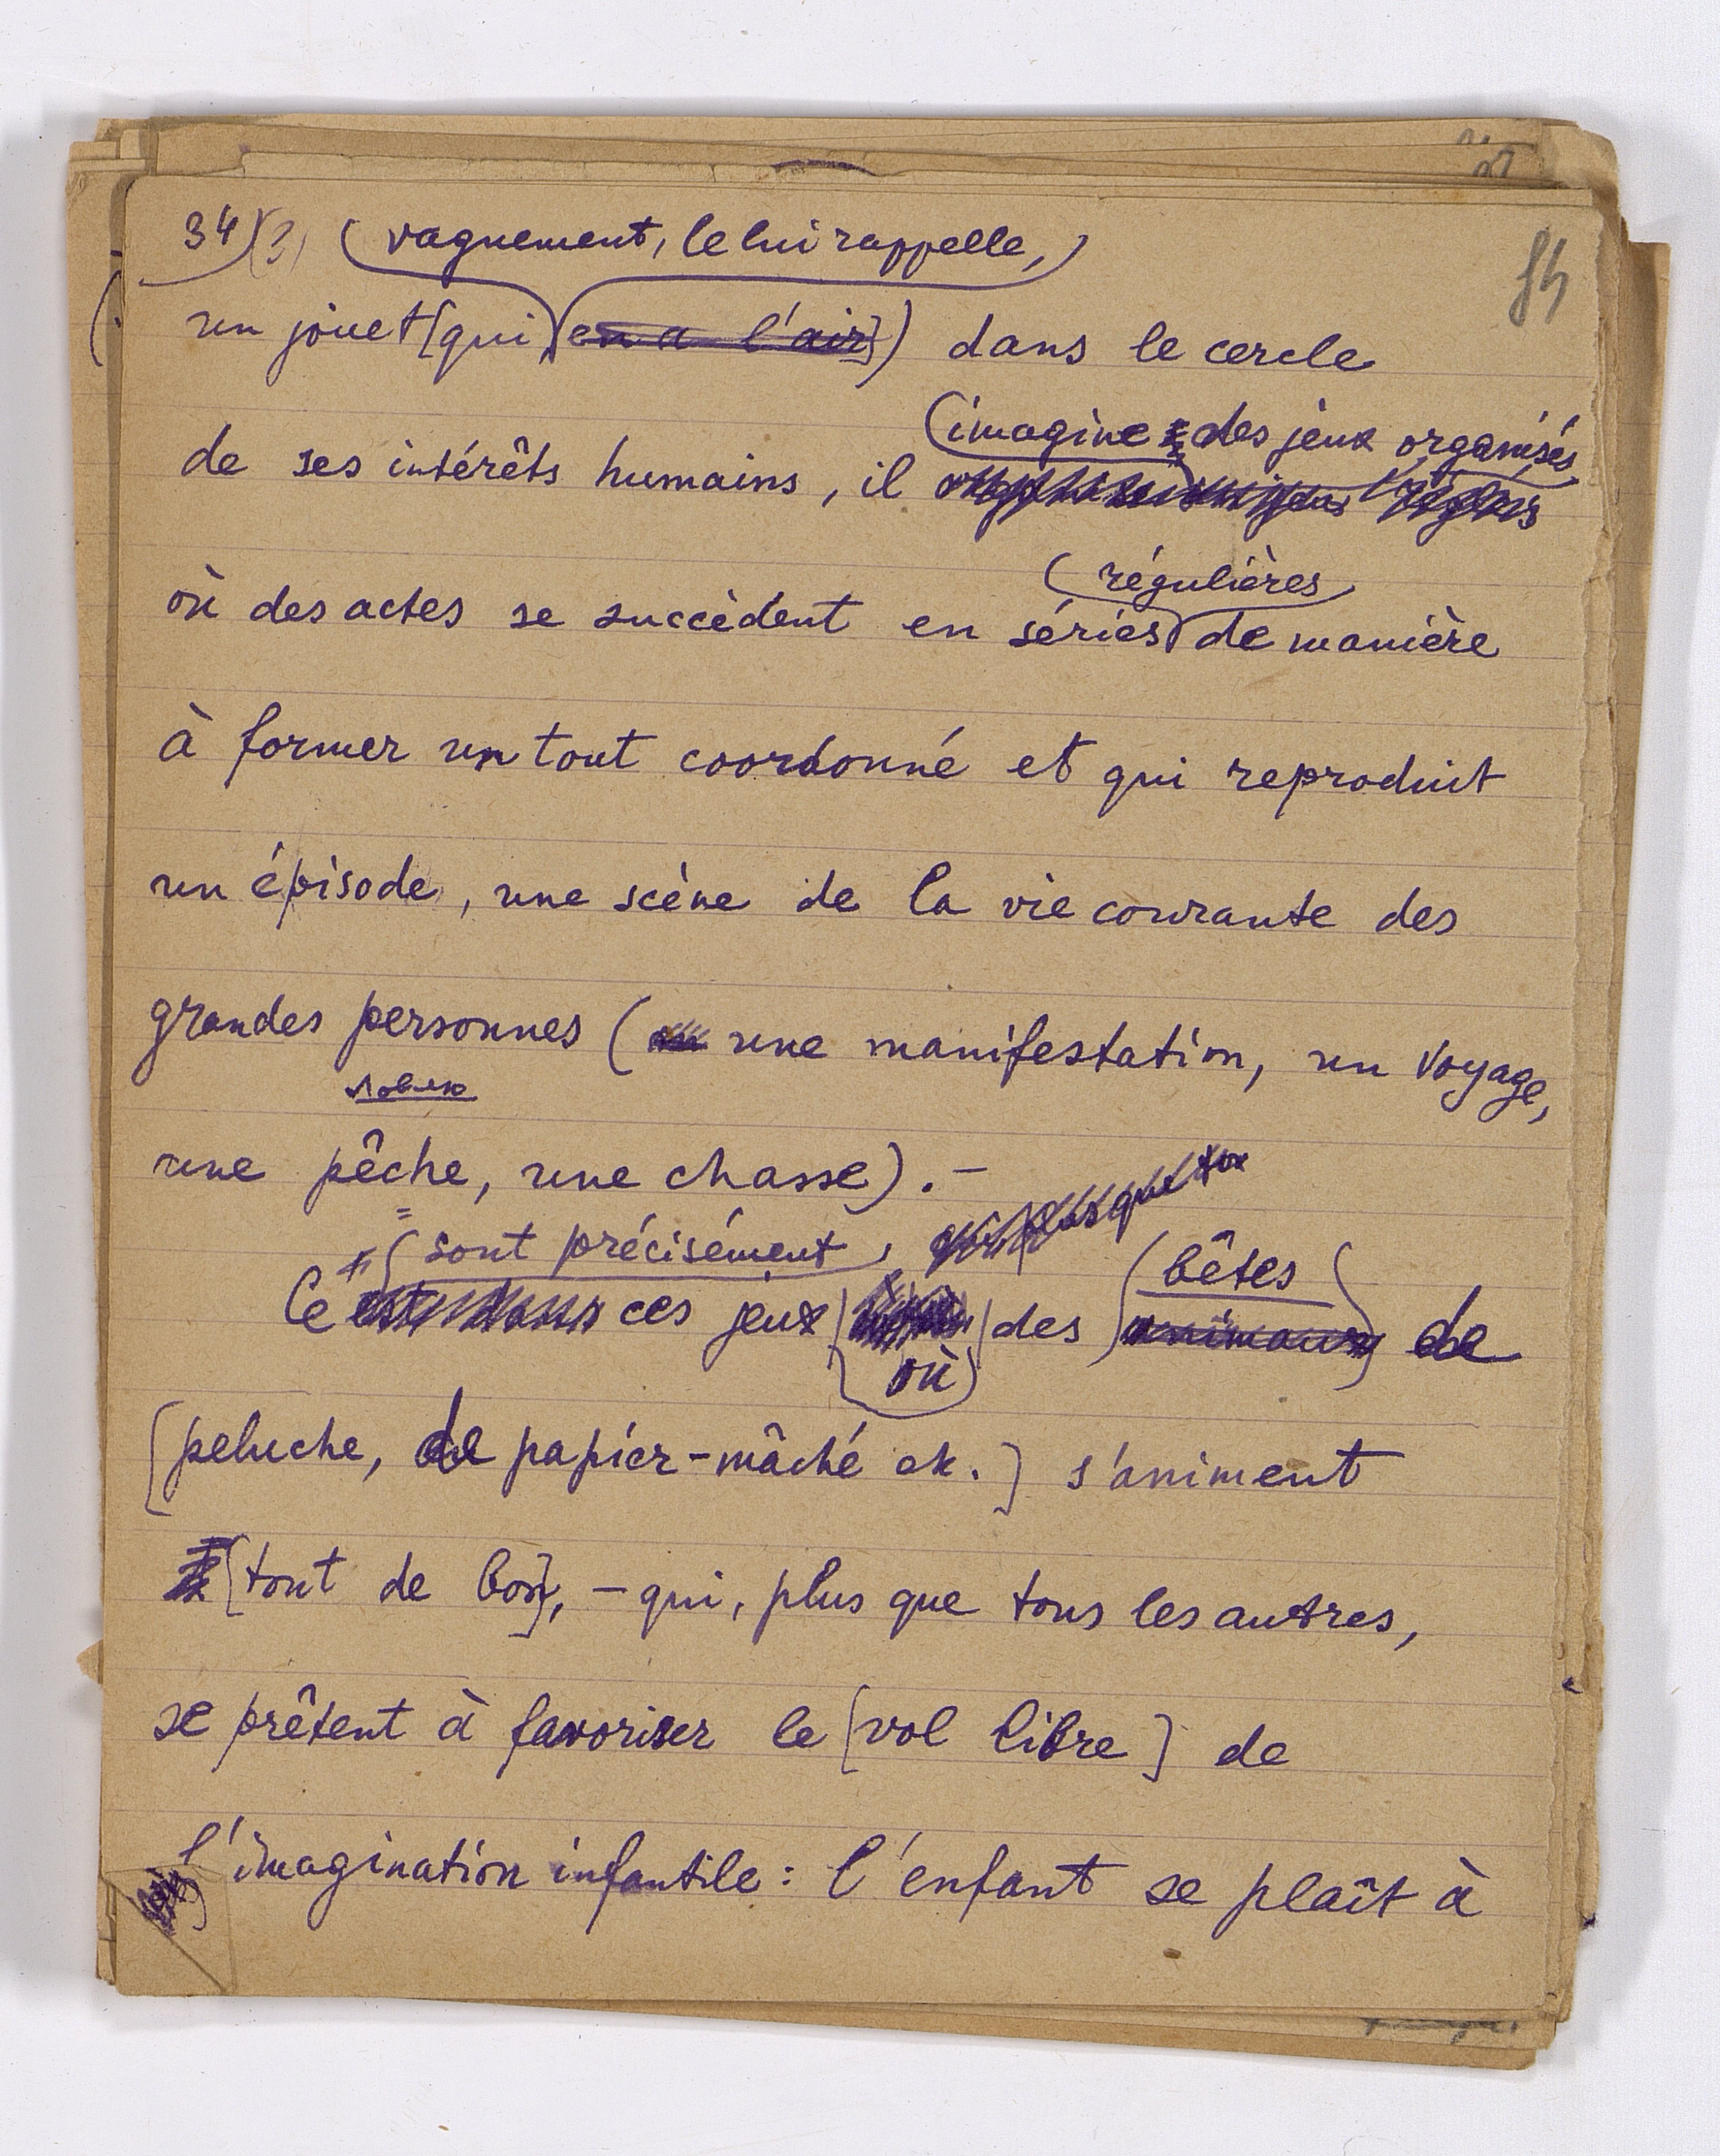 34) (3) vaguement, le lui rappelle,
84
un jouet [qui en a l'air]) dans le cercle
imagine des jeux organisés
de ses intérêts humains, il
régulières
où des actes se succèdent en séries de manière
à former un tout coordonné et qui reproduit
un épisode, une scène de la vie courante des
grandes personnes (une manifestation, un voyage,
une pêche, une chasse). –
sont précisément, qui, plus que tous
bêtes
Ce ces jeux des animaux de
où
[peluche, de papier-mâché etc.] s'animent
[tout de bon], – qui, plus que tous les autres,
se prêtent à favoriser le [vol libre] de
l'imagination infantile : l'enfant se plaît à